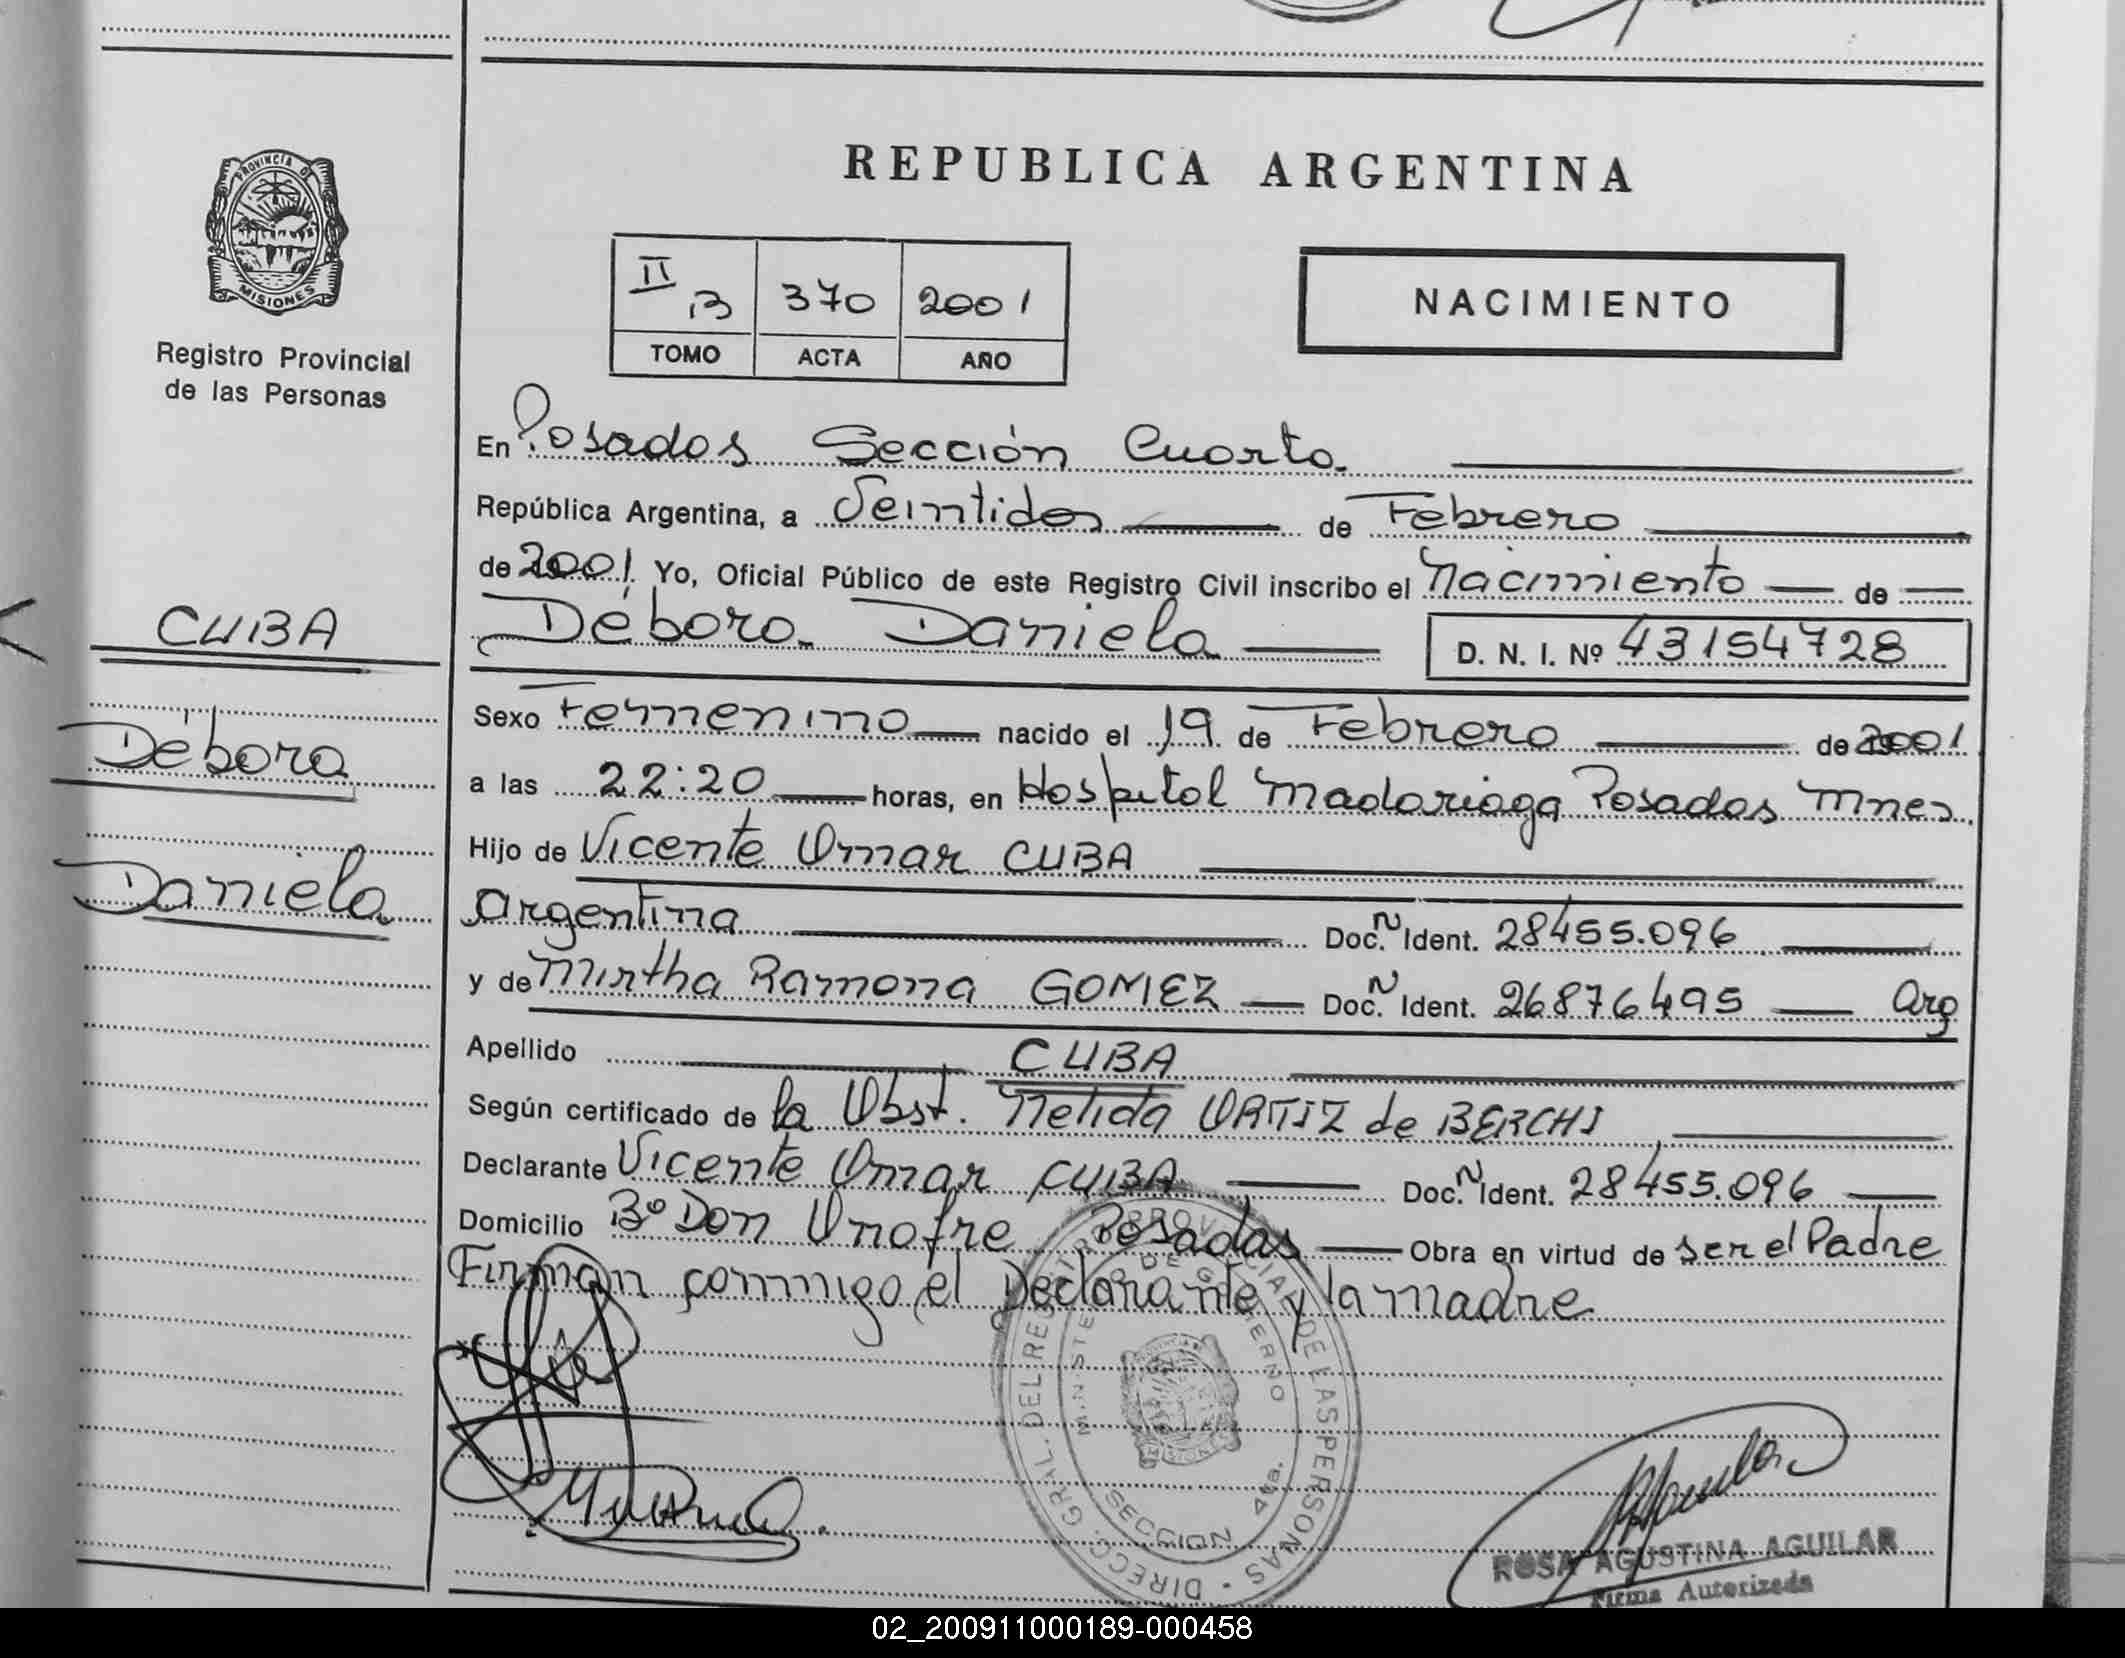 REPUBLICA ARGENTINA
PROVINCIA D
MISIONES
Registro Provincial
de las Personas
II B 370 2001
TOMO ACTA AÑO
NACIMIENTO
En Posadas Sección Cuarta
República Argentina, a Veintidos de Febrero
de 2001 Yo, Oficial Público de este Registro Civil inscribo el Nacimiento de
Débora Daniela D. N. I. Nº 43154728
CUBA
Débora
Daniela
Sexo Femenino nacido el 19 de Febrero de 2001
a las 22:20 horas, en Hospital Madariaga Posadas Mnes.
Hijo de Vicente Omar CUBA
Argentina Doc. N Ident. 28455.096
y de Mirtha Ramona GOMEZ Doc. N Ident. 26876495 Arg
Apellido CUBA
Según certificado de la Obst. Nelida ORTIZ de BERCHI
Declarante Vicente Omar CUBA Doc. N Ident. 28455.096
Domicilio Bº Don Onofre Posadas Obra en virtud de ser el Padre
Firman conmigo el Declarante y la madre
DIRECC. GRAL. DEL REGISTRO PROVINCIAL DE LAS PERSONAS
MINISTERIO DE GOBIERNO
SECCION 4ta.
ROSA AGUSTINA AGUILAR
Firma Autorizada
02_200911000189-000458